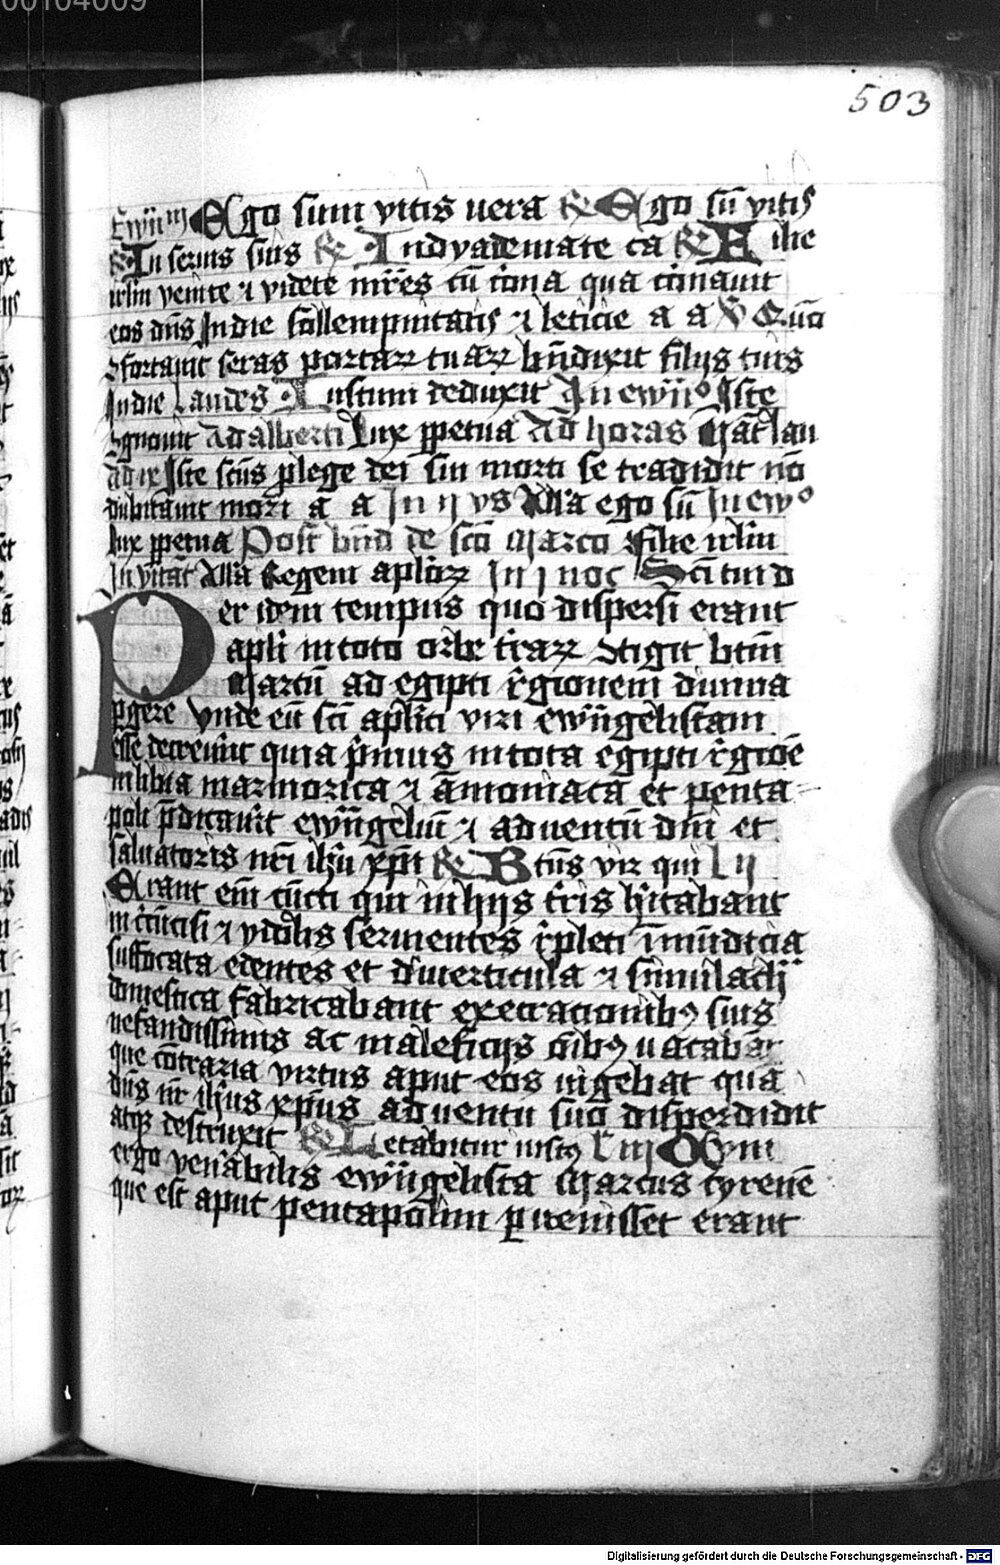 00104009
503
Ewm̄ iij Ego sum vitis uera R Ego sū vitis
R In seruis suis R In dyademate ca R Filie
irl̄m venite ⁊ videte mr̄es cū corona qua coronauit
eos dn̄s In die sollempnitatis ⁊ leticie a a V Qm̄
ɔfortauit seras portaꝝ tuaꝝ bn̄dixit filijs tuis
In die Laudes Iustum deduxit In ewo Iste
cognouit Adalberti Lux ꝑpetua Ad horas Mat̄ lau
Ad ix Iste scūs ꝓ lege dei sui morti se tradidit nō
dubitauit mori a a In ij vs Alla ego sū In ewo
lux ꝑpetua Post bn̄d de sctō Marco Filie irl̄m
In vitat̄ Alla Regem aplōꝝ In j noc̄ Scī tui d
Per idem tempus quo dispersi erant
apl̄i in toto orbe t̄raꝝ ɔtigit btm̄
Marcū ad egipti r̄gionem diuina
ꝑgere vnde eū scī apl̄ici viri ewn̄gelistam
esse decreuer̄t quia p̄mus in tota egipti r̄gioē
in libia marmorica ⁊ āmoniaca et penta-
poli p̄dicauit ewn̄geliū ⁊ aduentū dn̄i et
saluatoris nr̄i ihū xp̄i R Btūs vir qui L ij
Erant em̄ cūcti qui in hijs t̄ris hītabant
in cͬcūcisi ⁊ ydolis seruientes r̄pleti īmūdicia
suffocata edentes et diuerticula ⁊ simulacͬ
domestica fabricabant execracionibꝫ suis
nefandissimis ac maleficijs oībꝫ uacabāt
que cōtraria virtus aput eos uigebat quā
dn̄s nr̄ ihūs xp̄us aduentu suo disperdidit
atqꝫ destruxit R Letabitur iustꝫ L iij Qum
ergo ven̄abilis ewn̄gelista Marcus cyrenē
que est aput pentapolim ꝑuenisset erant
Digitalisierung gefördert durch die Deutsche Forschungsgemeinschaft - DFG